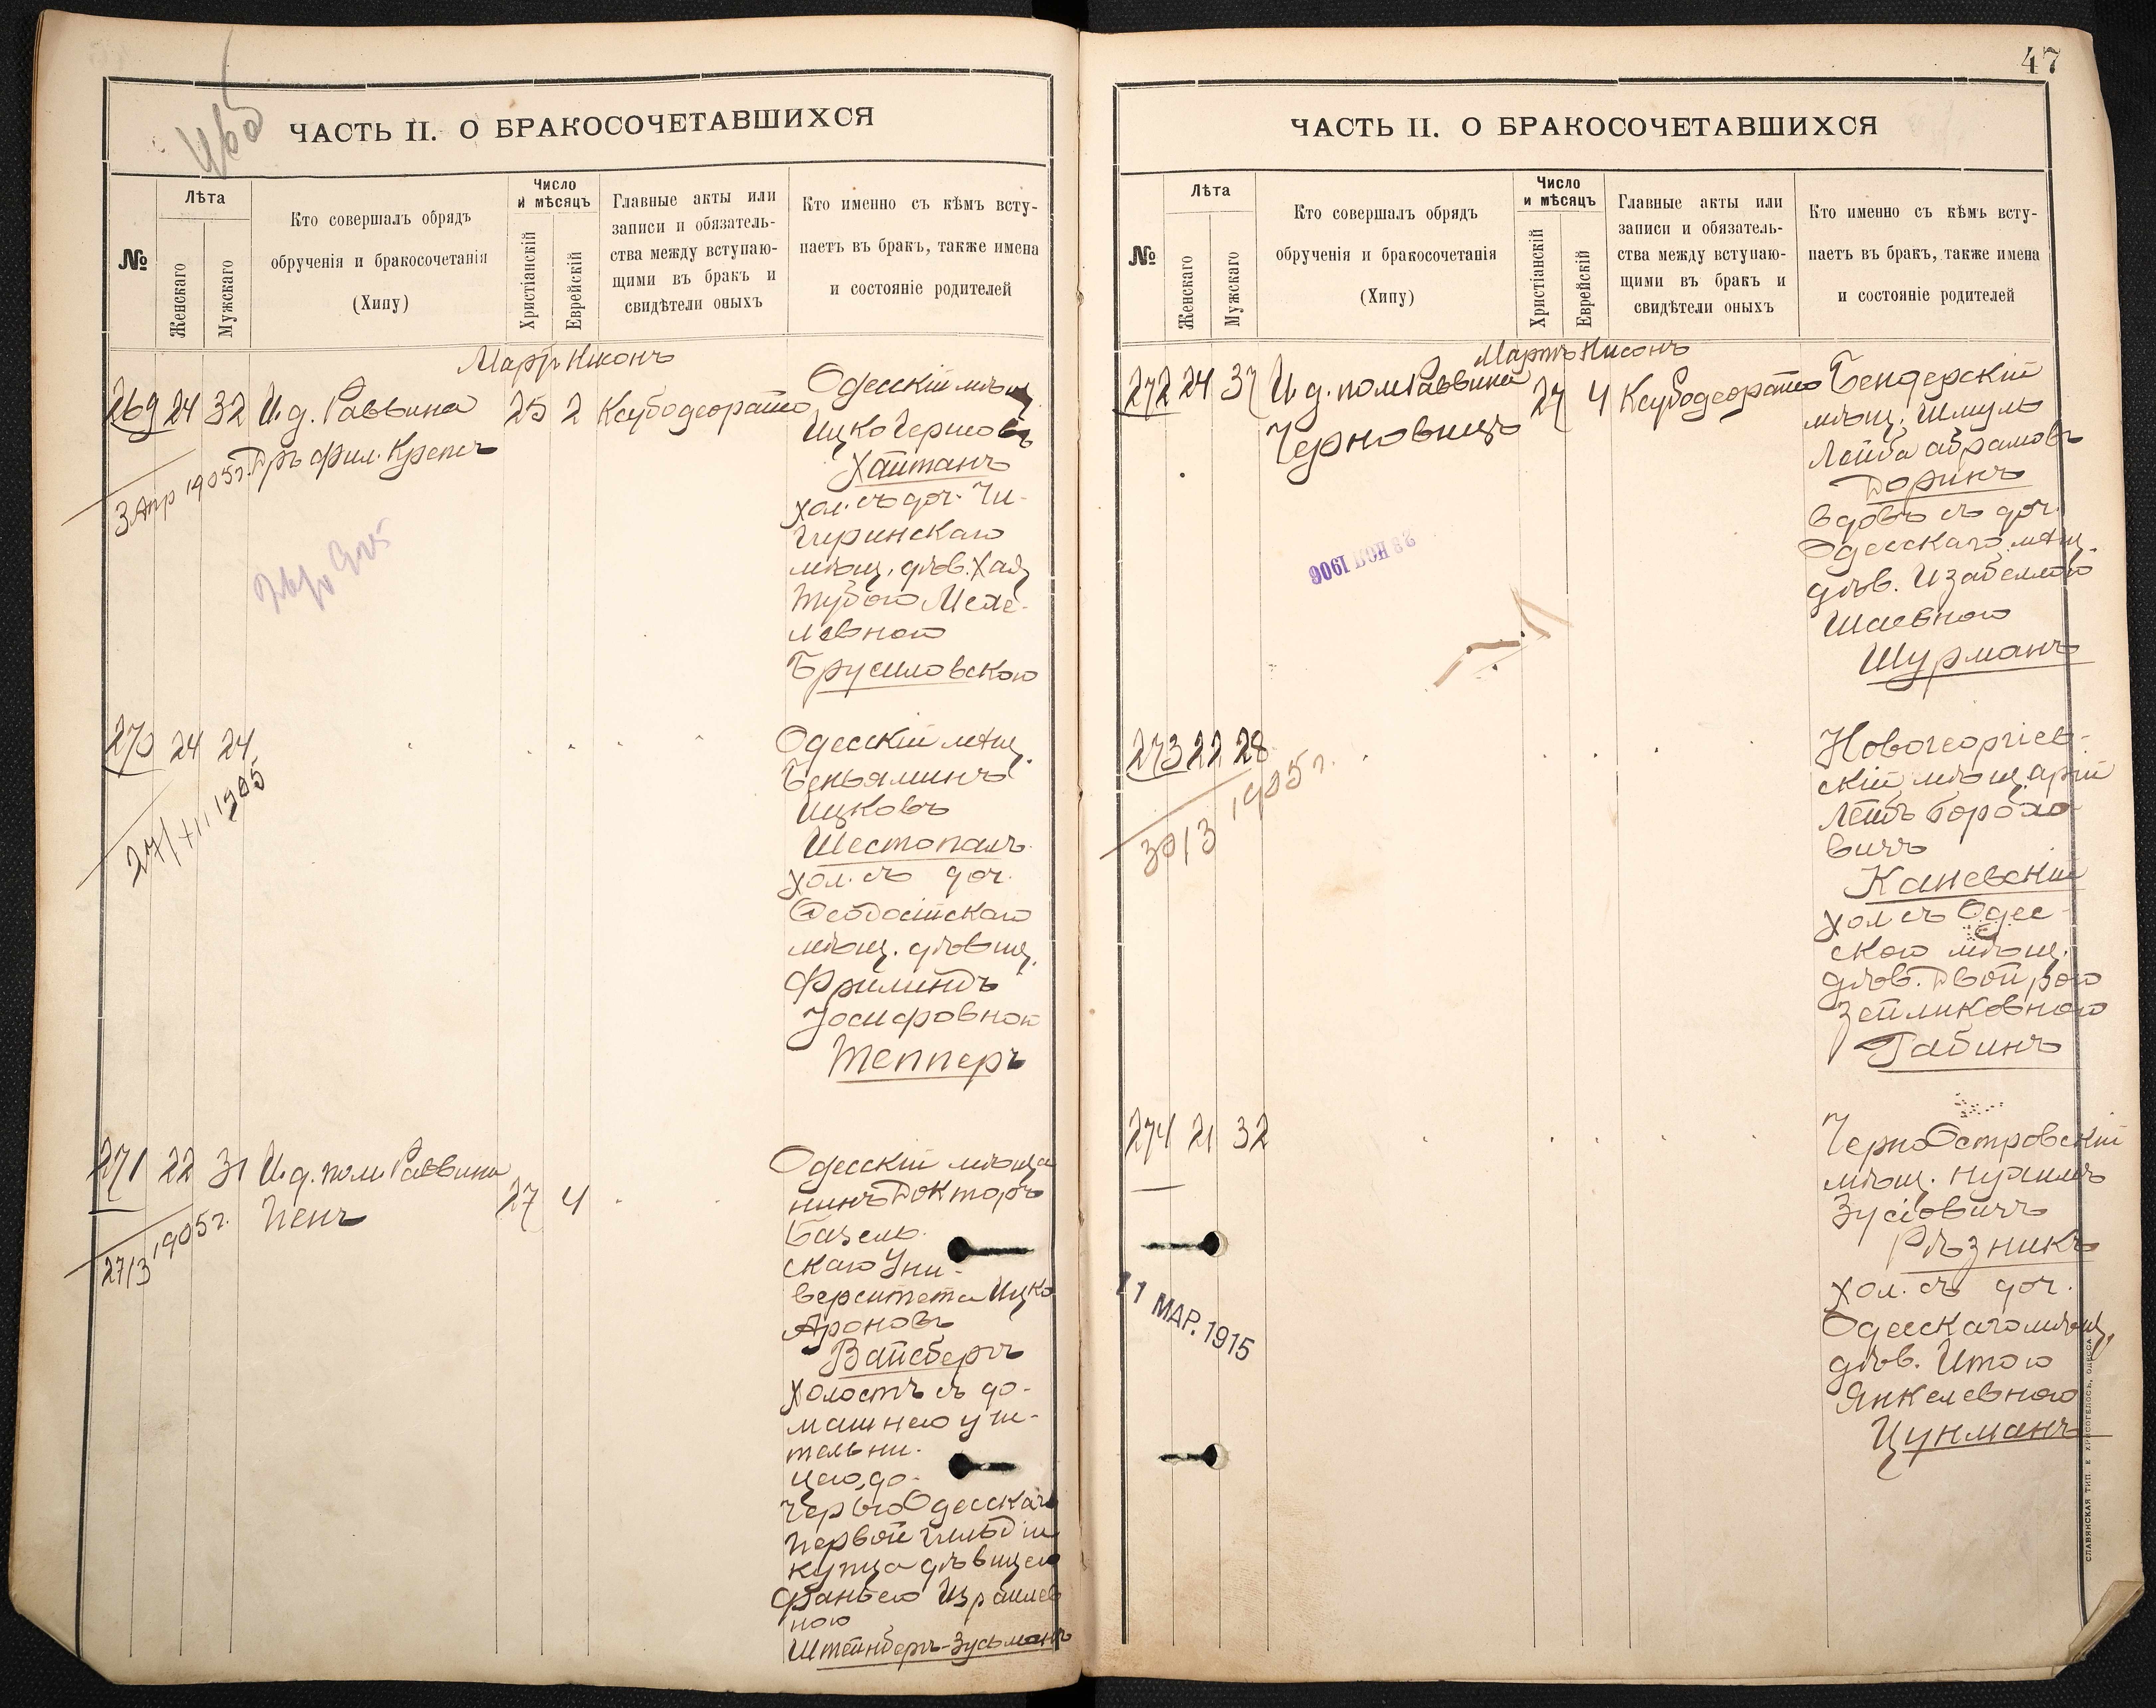 ЧАСТЬ II. О БРАКОСОЧЕТАВШИХСЯ
№
Лѣта
Женскаго
Мужскаго
Кто совершалъ обрядъ
обрученія и бракосочетанія
(Хипу)
Число
и мѣсяцъ
Христіанскій
Еврейскій
Главные акты или
записи и обязатель-
ства между вступаю-
щими въ бракъ и
свидѣтели оныхъ
Кто именно съ кѣмъ всту-
паетъ въ бракъ, также имена
и состояніе родителей
Мартъ Нисонъ
269 24 32 И.д. Раввина 25 2 Ксубодеорайто
Дръ фил. Крепсъ
3 Апр 1905г.
Одесскій мѣщ.
Ицко Гершовъ
Хайтанъ
хол. съ доч. Чи-
гиринскаго
мѣщ. дѣв. Хая
Тубою Менде-
левною
Брусиловскою
270 24 24
27/XII 1905
Одесскій мѣщ.
Беньяминъ
Ицковъ
Шестопалъ
хол. съ доч.
Феодосійскаго
мѣщ. дѣвиц.
Фримицъ
Іосифовною
Теплеръ
271 22 31 И.д. пом. Раввина
Пенъ 27 4
27/3 1905г.
Одесскій мѣща
нинъ Докторъ
Базель-
скаго Уни-
верситета Ицко
Ароновъ
Вайсбергъ
холостъ съ до-
машнею учи-
тельни-
цею, до-
черью Одесскаго
первой гильдіи
купца дѣвицею
Фанею Израилев
ною
Штейнбергъ-Зусьманъ
47
ЧАСТЬ II. О БРАКОСОЧЕТАВШИХСЯ
№
Лѣта
Женскаго
Мужскаго
Кто совершалъ обрядъ
обрученія и бракосочетанія
(Хипу)
Число
и мѣсяцъ
Христіанскій
Еврейскій
Главные акты или
записи и обязатель-
ства между вступаю-
щими въ бракъ и
свидѣтели оныхъ
Кто именно съ кѣмъ всту-
паетъ въ бракъ, также имена
и состояніе родителей
Мартъ Нисонъ
272 24 37 И.д. пом. Раввина 27 4 Ксубодеорайто
Черновицъ
28 НОЯ 1906
Бендерскій
мѣщ. Шмуль
Лейба Абрамовъ
Доринъ
вдовъ съ доч.
Одесскаго мѣщ.
дѣв. Изабеллою
Шаевною
Шурманъ
273 22 28
30/3 1905г.
Новогеоргіев-
скій мѣщ. Арій
Лейбъ Борохо
вичъ
Каневскій
хол съ Одес-
скою мѣщ.
дѣв. Двойрою
Зейликовною
Рабинъ
274 21 32
11 МАР. 1915
ЧерноОстровскій
мѣщ. Нухимъ
Зусіовичъ
Рѣзникъ
хол. съ доч.
Одесскаго мѣщ.
дѣв. Итою
Янкелевною
Цукманъ
СЛАВЯНСКАЯ ТИП. Е. ХРИСОГЕЛОСЪ, ОДЕССА